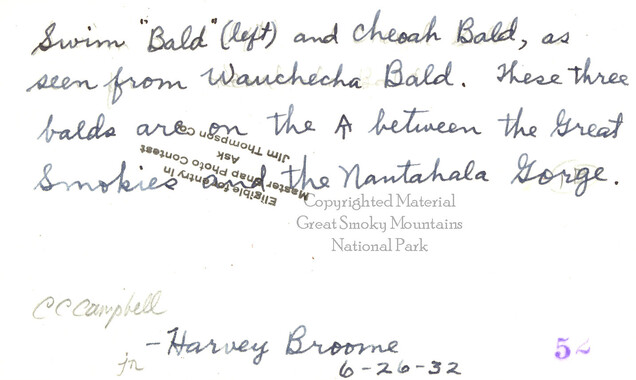 Swim "Bald" (left) and Cheoah Bald, as
seen from Wauchecha Bald. These three
balds are on the A between the Great
Smokies and the Nantahala Gorge.
Eligible for entry in
Master Snap Photo Contest
Ask
Jim Thompson Co.
Copyrighted Material
Great Smoky Mountains
National Park
CC Campbell
- Harvey Broome
6-26-32